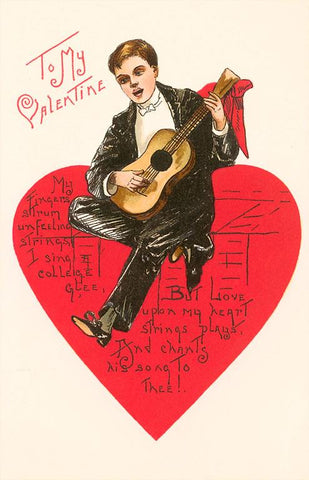 To My
Valentine
My
Fingers
strum
unfeeling
strings
I sing
college
Glee,
But Love
upon my heart
strings plays,
And chants
his song to
Thee!.